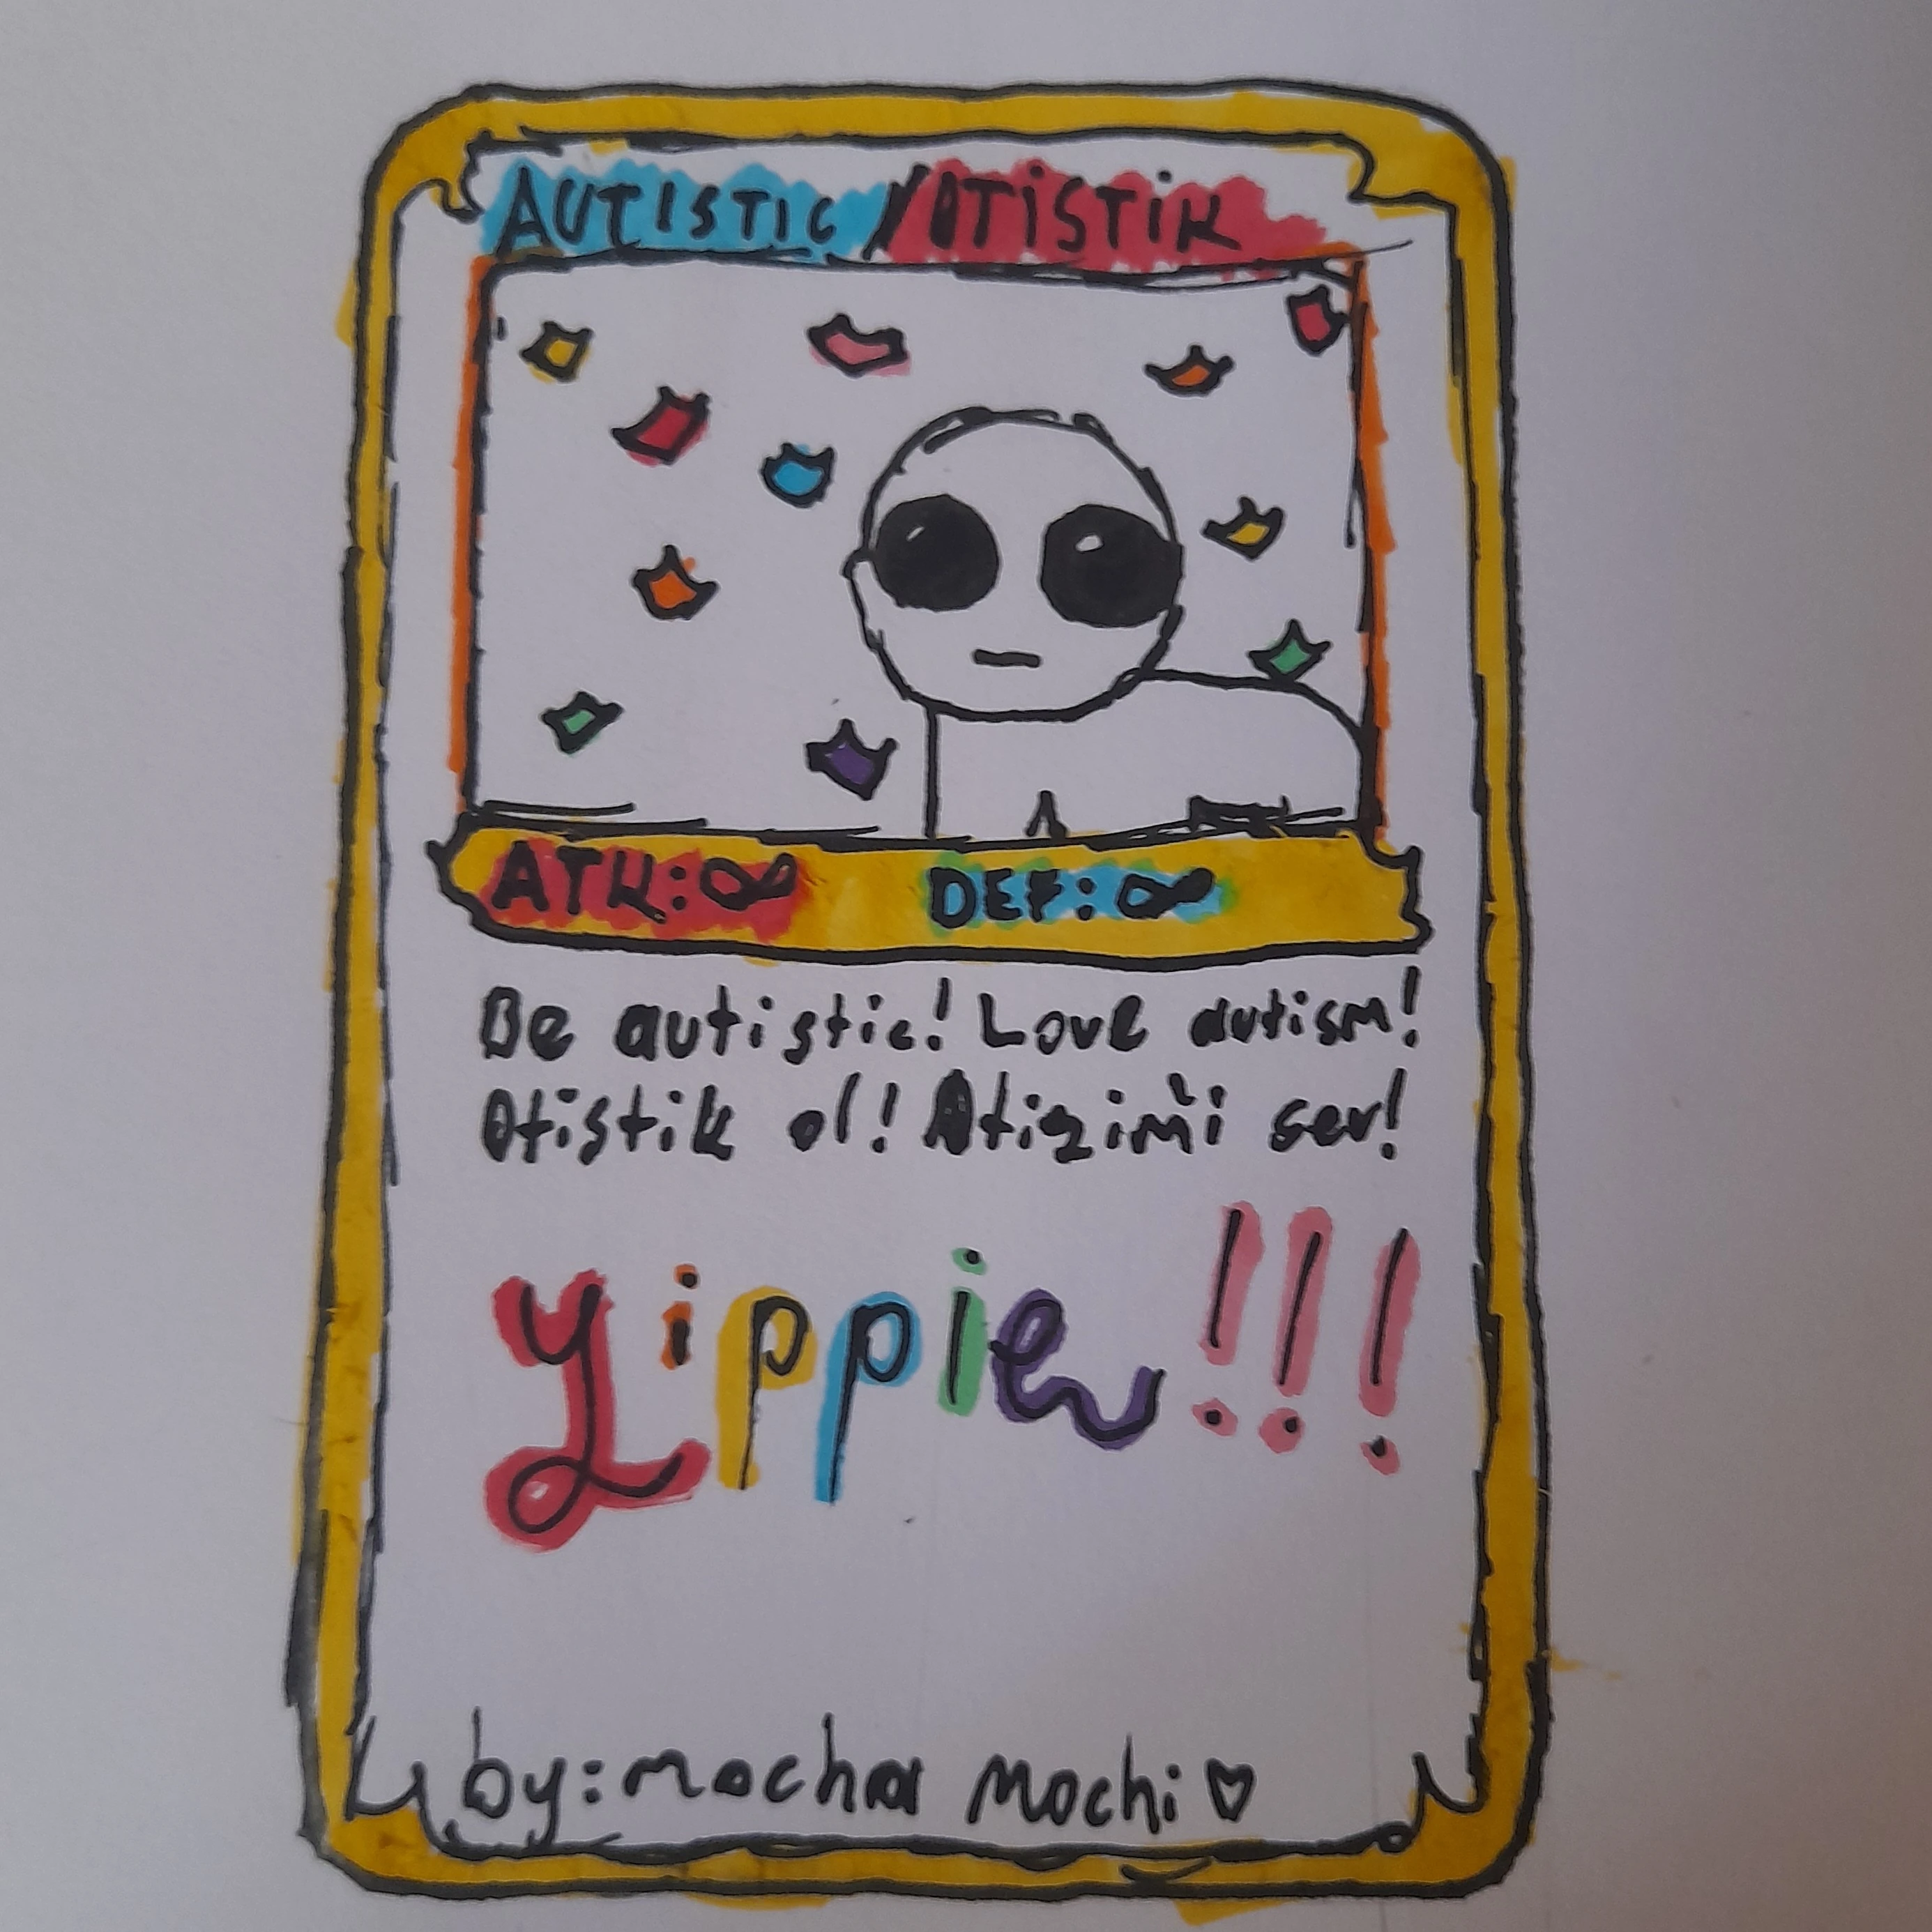 AUTISTIC/OTİSTİK
ATK:∞ DEF:∞
Be autistic! Love autism!
Otistik ol! Otizimi sev!
Yippie!!!
by: mocha Mochi♡